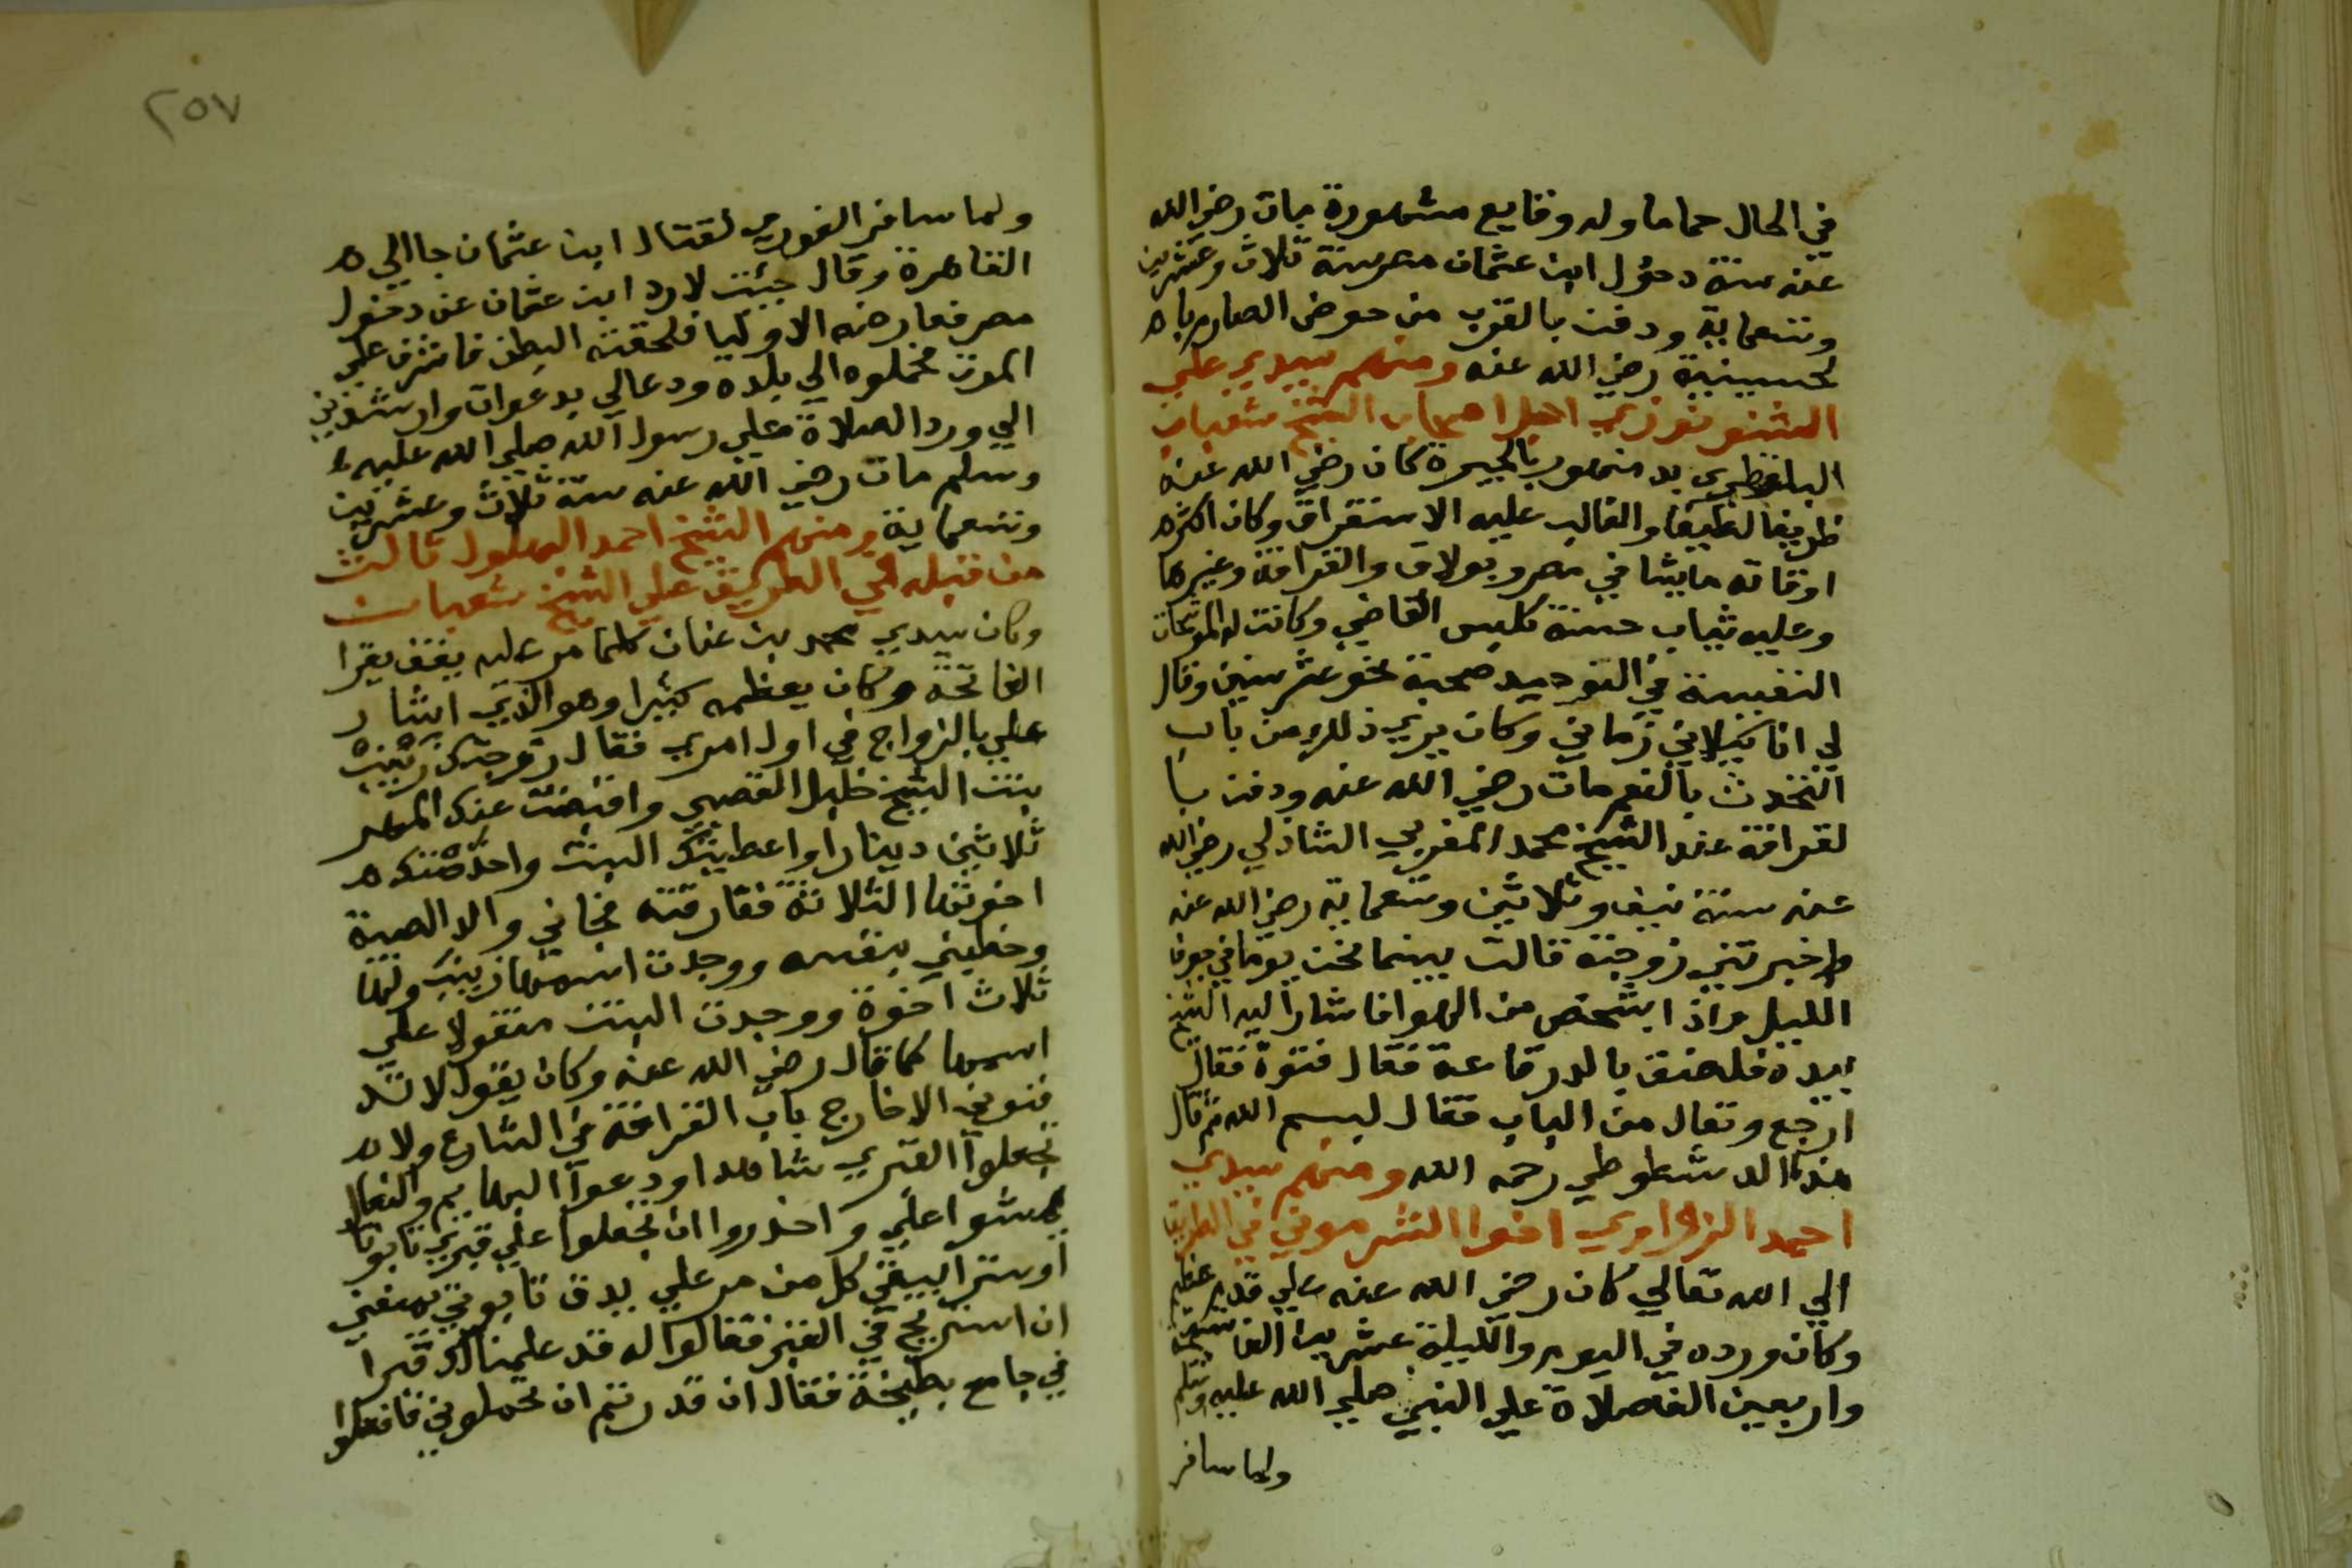 في الحال حماما وله وقايع مشهورة مات رضي الله
عنه سنة دخول ابن عثمان مصر سنة ثلاث وعشرين
وتسعماية ودفن بالقرب من حوض الصارم باه
لحسينية رضي الله عنه ومنهم سيدي علي
الشنو نوزي احد اصحاب الشيخ شعبان
البلقطري بد منهور بالبحيرة كان رضي الله عنه
ظريفا لطيفا والغالب عليه الاستغراق وكان اكثره
اوقاته ماشيا في مصر وبولاق والقرافة وغيرها
وعليه ثياب حسنة كلبس القاضي وكانت له الموشحات
النفيسة في التوحيد صحبته نحو عشر سنين وقال
لي انا كيلاني زماني وكان يريد ذلك من باب
التحدث بالنعم مات رضي الله عنه ودفن با
لقرافة عند الشيخ محمد المغربي الشاذلي رضي الله
عنه سنة نيف وثلاثين وتسعماية رضي الله عنه
واخبرتني زوجته قالت بينما نحن يوما في جوف
الليل واذا بشخص من الهوا فاشار اليه الشيخ
بيده فلصق بالدرقاعة فقال فتوة فقال
ارجع وتعال من الباب فقال لبسم الله ثم قال
هذا الدشطوطي رحمه الله ومنهم سيدي
احمد الزواوي اخوا الشرموني في الطريق
الي الله تعالي كان رضي الله عنه علي قدم عظيم
وكان ورده في اليوم والليلة عشرين الف تسبيحة
واربعين الف صلاة علي النبي صلي الله عليه وسلم
ولما سافر
٢٥٧
ولما سافر الغوري لقتال ابن عثمان جا الي ه
القاهرة وقال جيئت لارد ابن عثمان عن دخول
مصر فعارضه الاوليا فلحقته البطن فاشرف علي
الموت فحملوه الي بلده ودعا لي بدعوات وارشدني
الي ورد الصلاة علي رسول الله صلي الله عليه
وسلم مات رضي الله عنه سنة ثلاث وعشرين
وتسعماية ومنهم الشيخ احمد البهلول ثالث
من قبله في الطريق علي الشيخ شعبان
وكان سيدي محمد بن عنان كلما مر عليه يقف يقرا
الفاتحة وكان يعظمه كثيرا وهو الذي اشار
علي بالزواج في اول امري فقال زوجتك زينب
بنت الشيخ خليل القصبي واقبضت عنك المهر
ثلاثين دينارا واعطيتك البيت واخدمتك ه
اخوتها الثلاثة ففارقته فجاني والد الصبية
وخطبني بنفسه ووجدت اسمها زينب ولها
ثلاث اخوة ووجدت البيت مقفولا علي
اسمها كما قال رضي الله عنه وكان يقول لا تد
فنوني الا خارج باب القرافة في الشارع ولا ه
تجعلوا القبري شاهدا ودعوا البهايم والنعال
يمشوا علي واحذروا ان تجعلوا علي قبري تابوتا
او سترا يبقي كل من مر علي يدق تابوتي يمنعني
ان استريح في القبر فقالوا له قد علمنا لك قبرا
في جامع بطيخة فقال ان قدرتم ان تحملوني فافعلوا